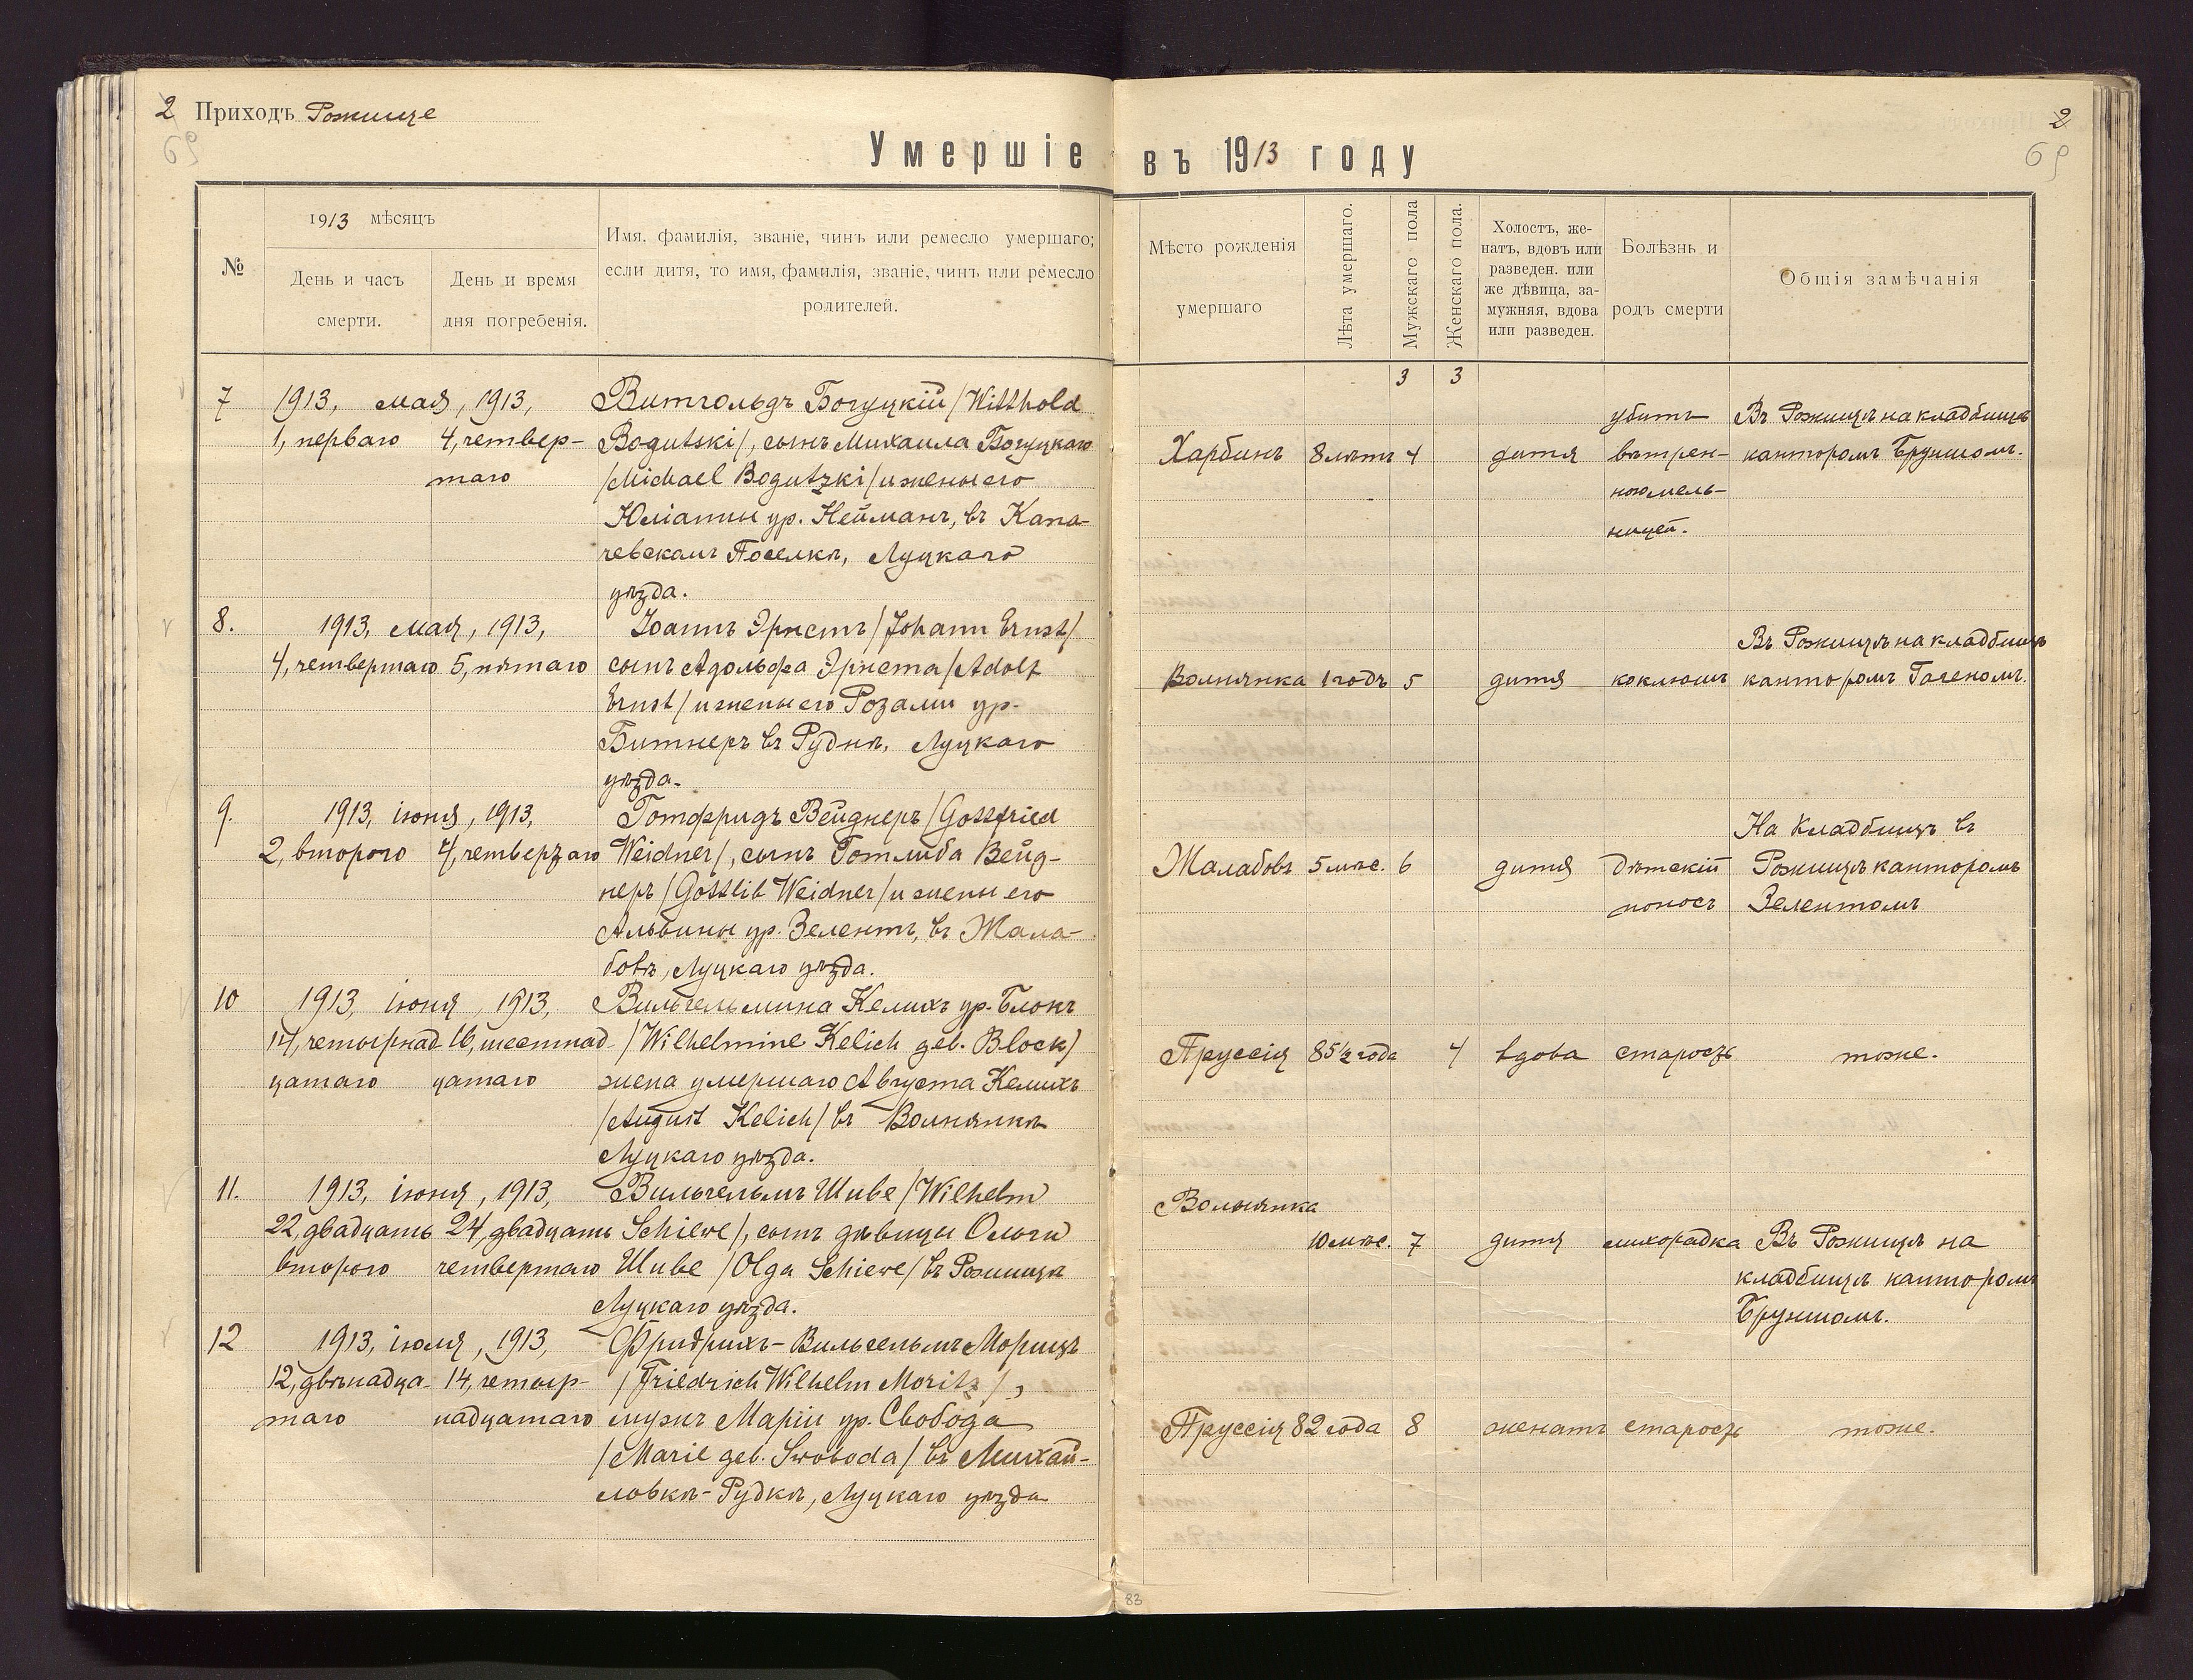 2 Приходъ Рожище
69
2
69
Умершіе въ 1913 году
№
1913 мѣсяцъ
День и часъ
смерти.
День и время
дня погребенія.
Имя, фамилія, званіе, чинъ или ремесло умершаго;
если дитя, то имя, фамилія, званіе, чинъ или ремесло
родителей.
Мѣсто рожденія
умершаго
Лѣта умершаго.
Мужскаго пола
Женскаго пола.
Холостъ, же-
натъ, вдовъ или
разведен. или
же дѣвица, за-
мужняя, вдова
или разведен.
Болѣзнь и
родъ смерти
Общія замѣчанія
3 3
7 1913, мая, 1913,
1, перваго 4, четвер-
таго
Витгольдъ Богуцкій /Witthold
Bogutski/, сынъ Михаила Богуцкаго
/Michael Bogutzki/ и жены его
Юліанны ур. Нейманъ, въ Копа-
чевскомъ Поселкѣ, Луцкаго
уѣзда.
Харбинъ 8 лѣтъ 4 дитя
убитъ
вѣтрен-
ною мель-
ницей.
Въ Рожищѣ на кладбищѣ
канторомъ Брунномъ.
8. 1913, мая, 1913,
4, четвертаго 5, пятаго
Іоаннъ Эрнстъ /Johann Ernst/
сынъ Адольфа Эрнста /Adolf
Ernst/ и жены его Розали ур.
Битнеръ въ Рудня, Луцкаго
уѣзда.
Волнянка 1 годъ 5 дитя коклюшъ
Въ Рожищѣ на кладбищѣ
канторомъ Гагеномъ.
9. 1913, іюня, 1913,
2, второго 4, четвертаго
Готфридъ Вейднеръ /Gottfried
Weidner/, сынъ Готлиба Вейд-
неръ /Gottlib Weidner/ и жены его
Альвины ур. Зелентъ, въ Жала-
бовѣ, Луцкаго уѣзда.
Жалабовъ 5 мѣс. 6 дитя
дѣтскій
поносъ
На кладбищѣ въ
Рожищѣ канторомъ
Зелентомъ
10 1913, іюня, 1913,
14, четырнад- 16, шестнад-
цатаго цатаго
Вильгельмина Келихъ ур. Блокъ
/Wilhelmine Kelich geb. Block/
жена умершаго Августа Келихъ
/August Kelich/ въ Волнянкѣ
Луцкаго уѣзда.
Пруссія 85½ года 4 вдова старость тоже.
11. 1913, іюня, 1913,
22, двадцать 24, двадцать
второго четвертаго
Вильгельмъ Шиве /Wilhelm
Schiewe/, сынъ дѣвицы Ольги
Шиве /Olga Schiewe/ въ Рожищѣ
Луцкаго уѣзда.
Вольнянка
10 мѣс. 7 дитя лихорадка
Въ Рожищѣ на
кладбищѣ канторомъ
Брунномъ.
12 1913, іюля, 1913,
12, двѣнадца- 14, четыр-
таго надцатаго
Фридрихъ-Вильгельмъ Морицъ
/Friedrich Wilhelm Moritz/,
мужъ Маріи ур. Свобода
/Marie geb. Swoboda/ въ Михай-
ловкѣ-Рудкѣ, Луцкаго уѣзда
Пруссія 82 года 8 женатъ старость тоже.
83